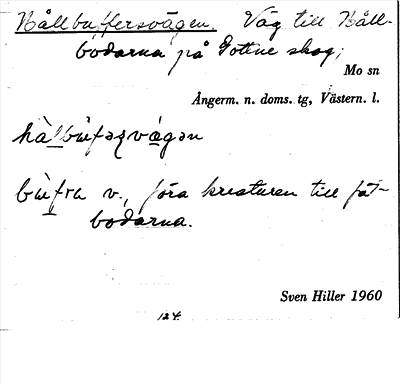 Hållbuffersvägen. Väg till Håll-
bodarna på Gottne skog;
Mo sn
Ångerm. n. doms. tg, Västern. l.
buffra v., föra kreaturen till fä-
bodarna.
Sven Hiller 1960
124